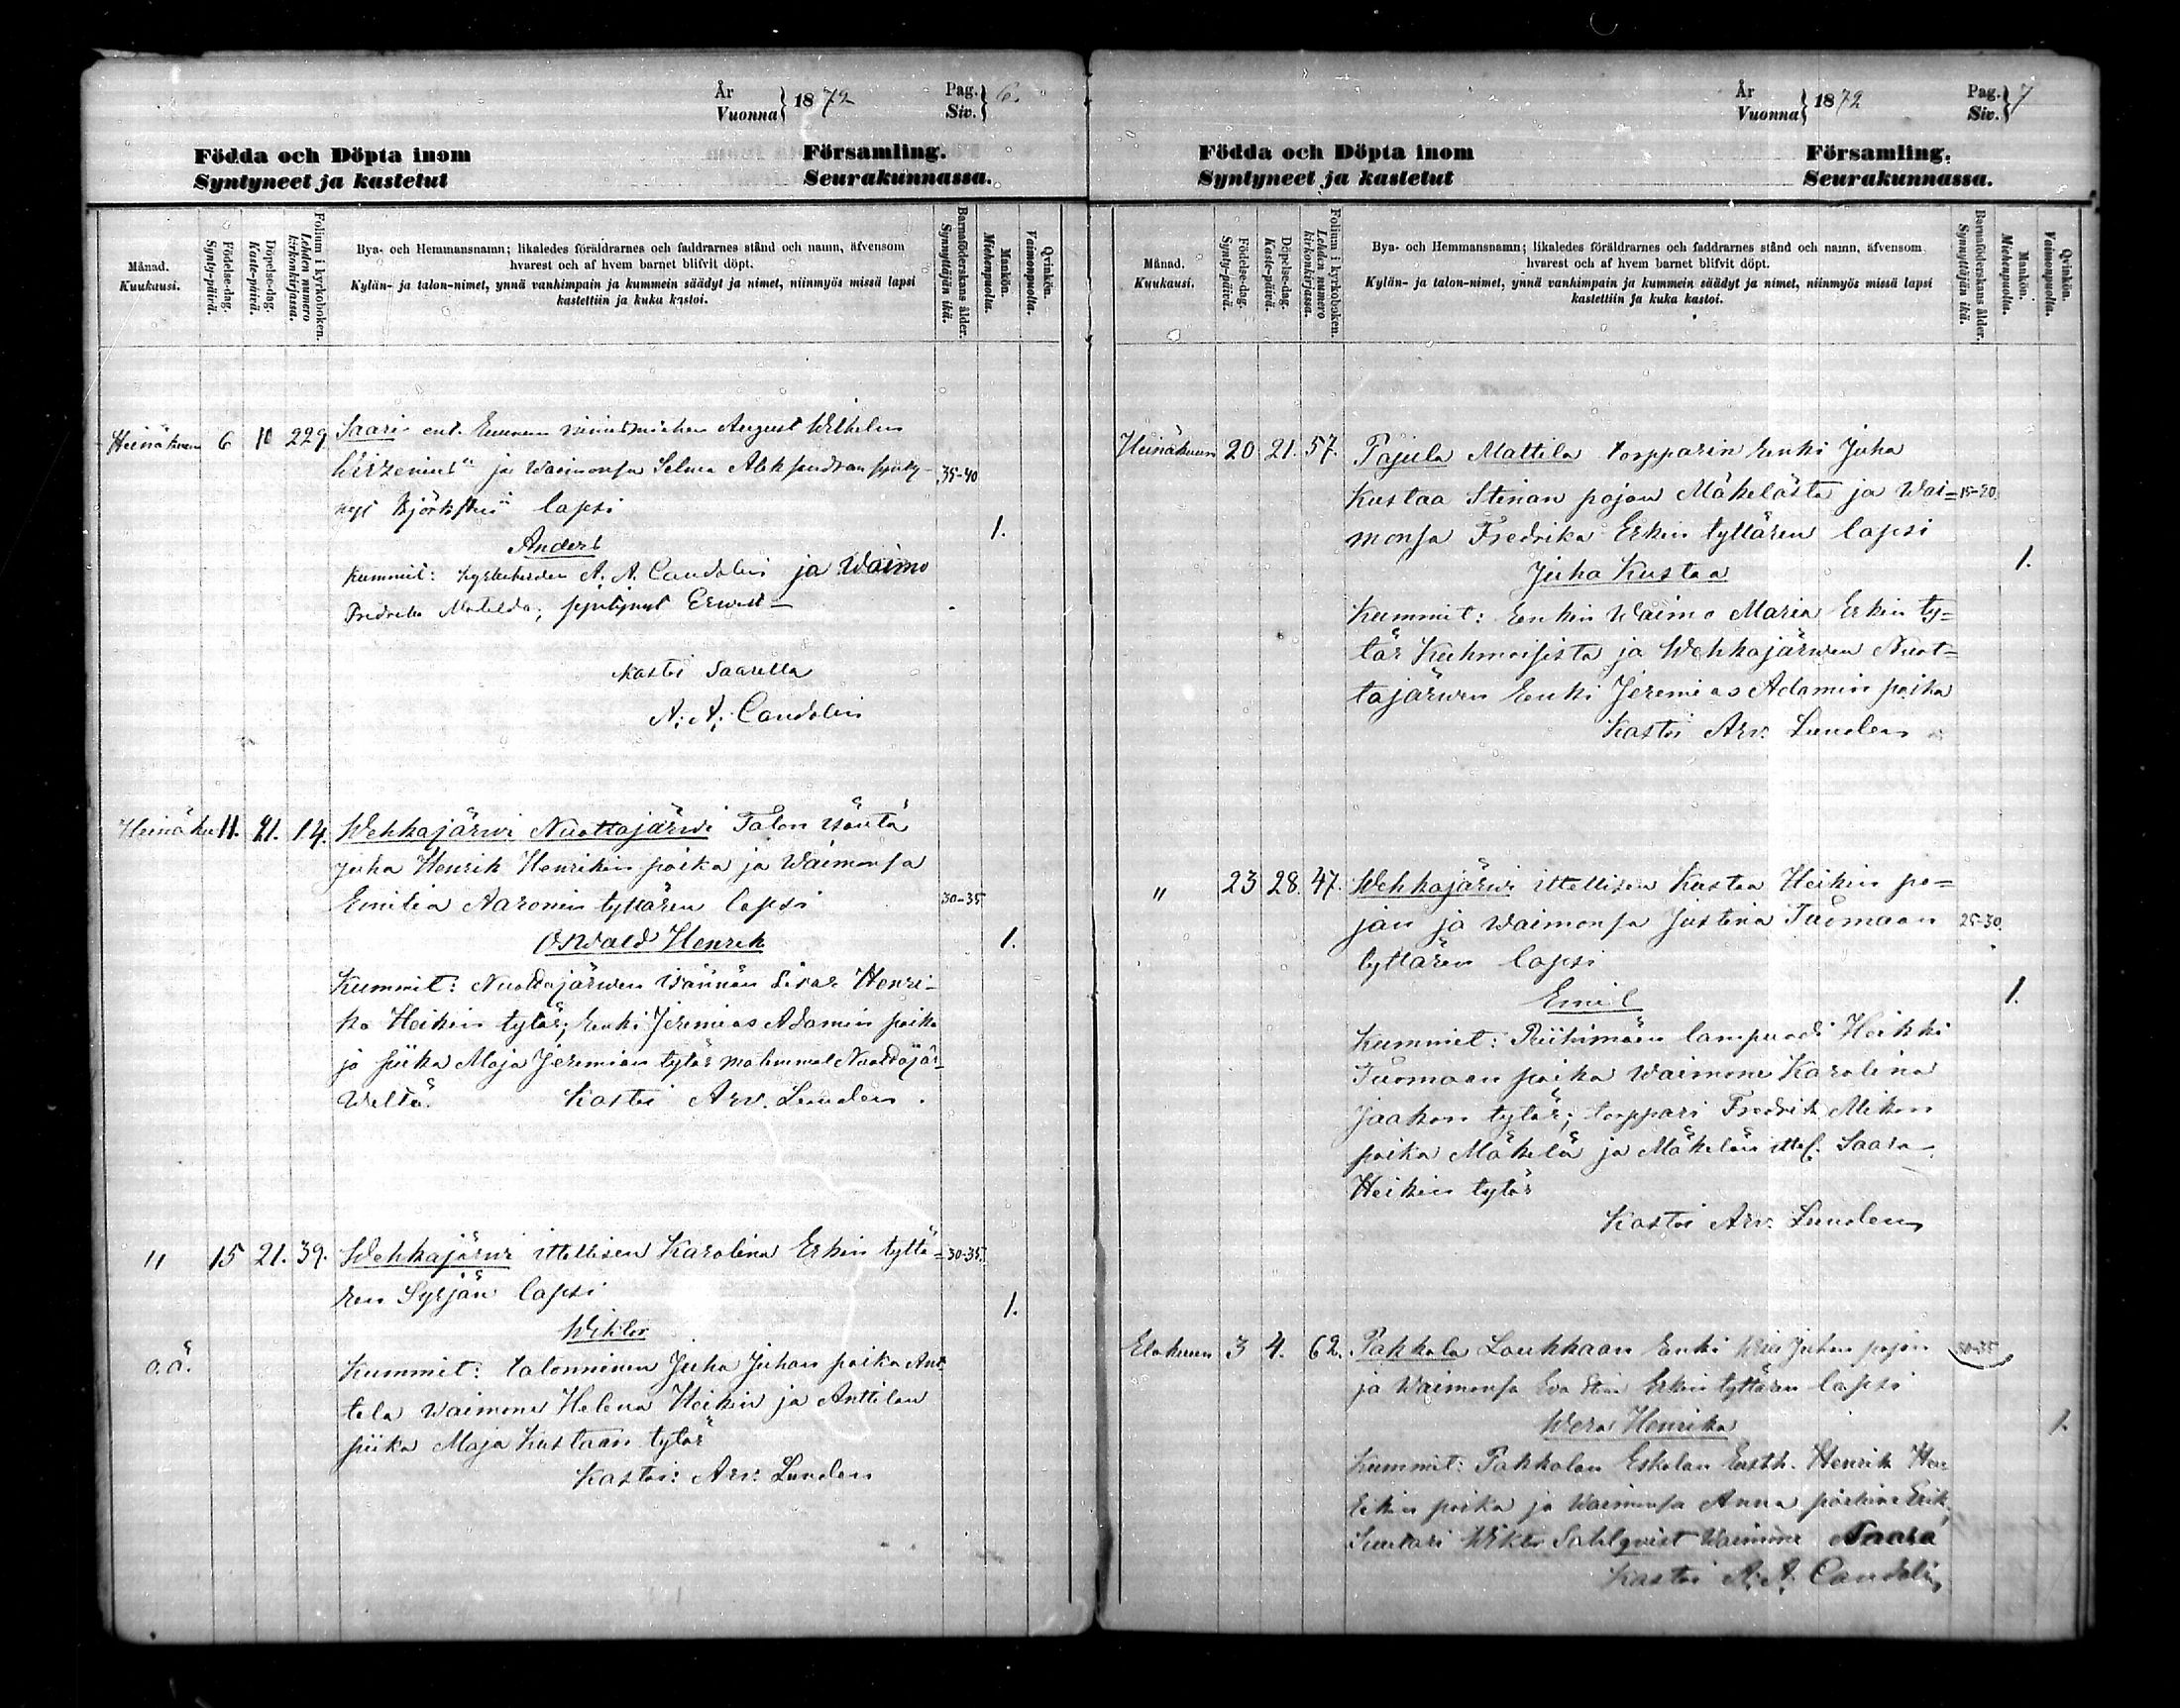 År
Vuonna } 1872
Pag.
Siv. } 6.
Födda och Döpta inom Församling.
Syntyneet ja kastetut Seurakunnassa.
Månad.
Kuukausi.
Födelse-dag.
Synty-päivä.
Döpelse-dag.
Kaste-päivä.
Folium i kyrkoboken.
Lehden numero kirkonkirjassa.
Bya- och Hemmansnamn; likaledes föräldrarnes och faddrarnes stånd och namn, äfvensom
hvarest och af hvem barnet blifvit döpt.
Kylän- ja talon-nimet, ynnä vanhimpain ja kummein säädyt ja nimet, niinmyös missä lapsi
kastettiin ja kuka kastoi.
Barnaföderskans ålder.
Synnyttäjän ikä.
Mankön.
Miehenpuolta.
Qvinkön.
Vaimonpuolta.
Heinäkuun 6 10 229 Saari ent. August Wilhelm
ja Waimonsa Selma 35-40
lapsi
1.
Anders
Kummit: A. A. Candolin ja Waimo
Fredrika Matilda,
Kastoi Saarella
A. A. Candolin
Heinäku 11. 21. 14. Wehkajärwi Nuottajärwi Talon isäntä
Juha Henrik Henrikin poika ja Waimonsa
Emilia Aaronin tyttären lapsi 30-35
Oswald Henrik 1.
Kummit: Nuottajärwen isännän sisar Henri-
ka Heikin tytär; Renki Jeremias Adamin poika
ja piika Maja Jeremian tytär molemmat Nuottajär-
weltä. Kastoi Arv. Lunden.
" 15 21. 39. Wehkajärwi ittellisen Karolina Erkin tyttä- 30-35.
ren Syrjän lapsi
1.
Wiktor
a.ä. Kummit: talonninen Juha Juhan poika Ant-
tila Waimone Helena Heikin ja Anttilan
piika Maja Kustaan tytär
Kastoi: Arv. Lunden
År
Vuonna } 1872
Pag.
Siv. } 7
Födda och Döpta inom Församling.
Syntyneet ja kastetut Seurakunnassa.
Månad.
Kuukausi.
Födelse-dag.
Synty-päivä.
Döpelse-dag.
Kaste-päivä.
Folium i kyrkoboken.
Lehden numero kirkonkirjassa.
Bya- och Hemmansnamn; likaledes föräldrarnes och faddrarnes stånd och namn, äfvensom
hvarest och af hvem barnet blifvit döpt.
Kylän- ja talon-nimet, ynnä vanhimpain ja kummein säädyt ja nimet, niinmyös missä lapsi
kastettiin ja kuka kastoi.
Barnaföderskans ålder.
Synnyttäjän ikä.
Mankön.
Miehenpuolta.
Qvinkön.
Vaimonpuolta.
Heinäkuun 20 21. 57. Pajula Mattila torpparin Renki Juha
Kustaa Stinan pojan Mäkelästä ja Wai- 15-20
monsa Fredrika Erkin tyttären lapsi
1.
Juha Kustaa
Kummit: Renkin Waimo Maria Erkin ty-
tär Kuhmoisista ja Wehkajärwen Nuot-
tajärwen Renki Jeremias Adamin poika
Kastoi Arv. Lunden
" 23 28. 47. Wehkajärwi ittellisen Kustaa Heikin po-
jan ja Waimonsa Justina Tuomaan 25-30.
tyttären lapsi
Emil 1.
Kummit: Riihimäen lampuodi Heikki
Tuomaan poika Waimone Karolina
Jaakon tytär; torppari Fredrik Mikon
poika Mäkelä ja Mäkelän ittel. Saara
Heikin tytär
Kastoi Arv. Lunden
Elokuun 3 4. 62. Pakkala Loukkaan Renki Juhan pojan 30-35
ja Waimonsa Eva Stina Erkin tyttären lapsi
Wera Henrika 1.
Kummit: Pakkalan Eskolan Henrik Hen-
rikin poika ja Waimonsa Anna
Suutari Wiktor Sahlqvist Waimone Saara
Kastoi A. A. Candolin